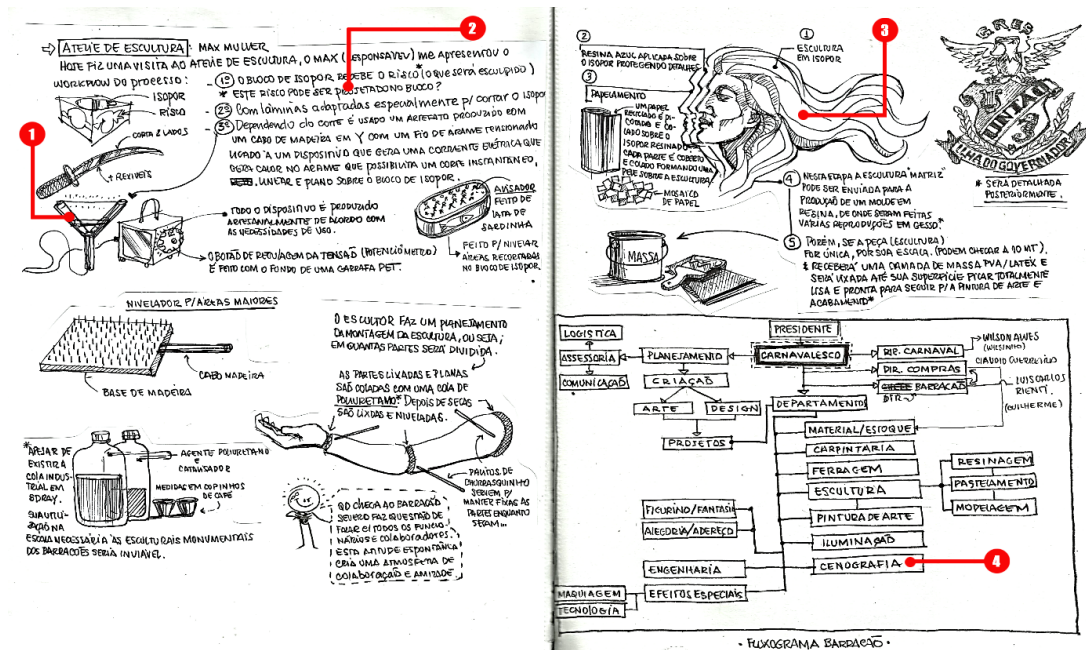 ⇨ ATELIÊ DE ESCULTURA: MAX MULLER
HOJE FIZ UMA VISITA AO ATELIÊ DE ESCULTURA, O MAX (RESPONSÁVEL) ME APRESENTOU O
WORKFLOW DO PROCESSO:
1º O BLOCO DE ISOPOR RECEBE O RISCO (O QUE SERÁ ESCULPIDO)
* ESTE RISCO PODE SER PROJETADO NO BLOCO?
2º Com lâminas adaptadas especialmente p/ cortar o isopor
3º Dependendo do corte é usado um artefato produzido com
UM CABO DE MADEIRA EM Y COM UM FIO DE ARAME TENSIONADO
LIGADO A UM DISPOSITIVO QUE GERA UMA CORRENTE ELÉTRICA QUE
GERA CALOR NO ARAME QUE POSSIBILITA UM CORTE INSTANTÂNEO,
LINEAR E PLANO SOBRE O BLOCO DE ISOPOR.
ISOPOR
RISCO
CORTA 2 LADOS
* TODO O DISPOSITIVO É PRODUZIDO
ARTESANALMENTE DE ACORDO COM
AS NECESSIDADES DE USO.
O BOTÃO DE REGULAGEM DA TENSÃO (POTENCIÔMETRO)
É FEITO COM O FUNDO DE UMA GARRAFA PET.
ALISADOR
FEITO DE
LATA DE
SARDINHA
FEITO P/ NIVELAR
ÁREAS RECORTADAS
NO BLOCO DE ISOPOR.
NIVELADOR P/ ÁREAS MAIORES
CABO MADEIRA
BASE DE MADEIRA
O ESCULTOR FAZ UM PLANEJAMENTO
DA MONTAGEM DA ESCULTURA, OU SEJA,
EM QUANTAS PARTES SERÁ DIVIDIDA.
AS PARTES LIXADAS E PLANAS
SÃO COLADAS COM UMA COLA DE
POLIURETANO.* DEPOIS DE SECAS
SÃO LIXADAS E NIVELADAS.
PALITOS DE
CHURRASQUINHO
SERVEM P/
MANTER FIXAS AS
PARTES ENQUANTO
SECAM...
* APESAR DE
EXISTIR A
COLA INDUS-
TRIAL EM
SPRAY.
SUA UTILI-
ZAÇÃO NA
ESCALA NECESSÁRIA ÀS ESCULTURAIS MONUMENTAIS
DOS BARRACÕES SERIA INVIÁVEL.
AGENTE POLIURETANO
E
CATALISADOR
MEDIDAS EM COPINHOS
DE CAFÉ
QD CHEGA AO BARRACÃO
SEVERO FAZ QUESTÃO DE
FALAR C/ TODOS OS FUNCIO-
NÁRIOS E COLABORADORES.
ESTA ATITUDE ESPONTÂNEA
CRIA UMA ATMOSFERA DE
COLABORAÇÃO E AMIZADE.
1
2
3
4
①
ESCULTURA
EM ISOPOR
②
RESINA AZUL APLICADA SOBRE
O ISOPOR PROTEGENDO DETALHES
③
PAPELAMENTO
UM PAPEL
RECICLADO É PI-
COTADO E CO-
LADO SOBRE O
ISOPOR RESINADO
CADA PARTE É COBERTO
E COLADO FORMANDO UMA
PELE SOBRE A ESCULTURA
MOSAICO
DE PAPEL
④ NESTA ETAPA A ESCULTURA "MATRIZ"
PODE SER ENVIADA PARA A
PRODUÇÃO DE UM MOLDE EM
RESINA, DE ONDE SERAM FEITAS
VÁRIAS REPRODUÇÕES EM GESSO.*
⑤ PORÉM, SE A PEÇA (ESCULTURA)
FOR ÚNICA, POR SUA ESCALA. (PODEM CHEGAR A 10 MT).
RECEBERÁ UMA CAMADA DE MASSA PVA/LATEX E
SERÁ LIXADA ATÉ SUA SUPERFÍCIE FICAR TOTALMENTE
LISA E PRONTA PARA SEGUIR P/ A PINTURA DE ARTE E
ACABAMENTO*
MASSA
GRES
UNIÃO
ILHA DO GOVERNADOR
* SERÁ DETALHADA
POSTERIORMENTE.
PRESIDENTE
CARNAVALESCO
LOGISTICA
ASSESSORIA
COMUNICAÇÃO
PLANEJAMENTO
CRIAÇÃO
ARTE
DESIGN
PROJETOS
DEPARTAMENTOS
DIR. CARNAVAL
WILSON ALVES
(WILSINHO)
DIR. COMPRAS
CHEFE BARRACÃO
DIR
LUIS CARLOS
(GUILHERME)
MATERIAL/ESTOQUE
CARPINTARIA
FERRAGEM
ESCULTURA
PINTURA DE ARTE
ILUMINAÇÃO
CENOGRAFIA
RESINAGEM
PASTELAMENTO
MODELAGEM
FIGURINO/FANTASIA
ALEGORIA/ADEREÇO
ENGENHARIA
EFEITOS ESPECIAIS
MAQUIAGEM
TECNOLOGIA
• FLUXOGRAMA BARRACÃO •